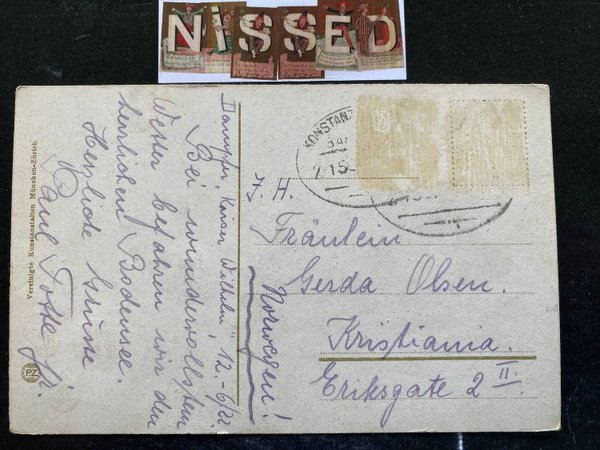 NISSED
Dampfer "Kaiser Wilhelm", 12.-6/22
Bei wundervollstem
Wetter befahren wir den
herrlichen Bodensee.
Herzliche Grüsse
Paul
jr.
Vereinigte Kunstanstalten München-Zürich
KONSTAN
7-15-
J. H.
Fräulein
Gerda Olsen.
Kristiania.
Eriksgate 2 II.
Norwegen!